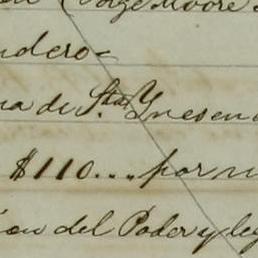 Jorge Moore
ndero=
na de Sta. Ynes en
$110.... por
ion del Poder y leg